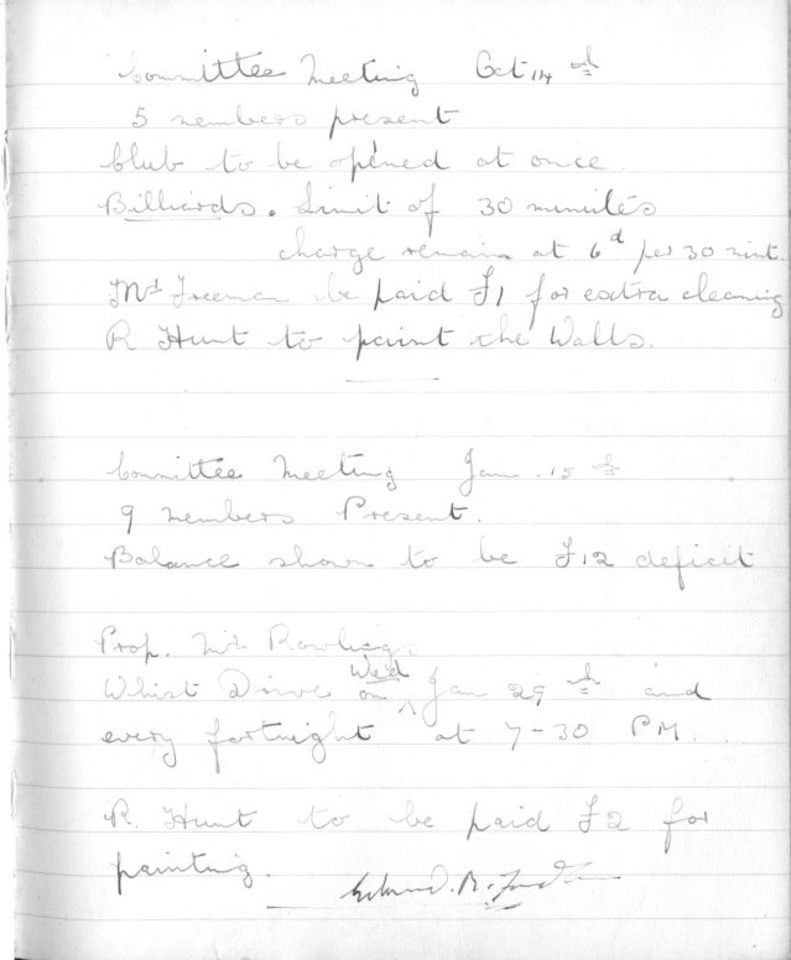 Committee Meeting Oct 14th
5 members present
Club to be opened at once
Billiards. Limit of 30 minutes
charge remain at 6d per 30 mint.
Mrs Freeman be paid £1 for extra cleaning
R Hunt to paint the Walls.
Committee Meeting Jan. 15th
9 members Present.
Balance shown to be £12 deficit
Prop. Mr Rowling.
Whist Drive on Wed Jan 29th and
every fortnight at 7-30 PM.
R. Hunt to be paid £2 for
painting.
R.